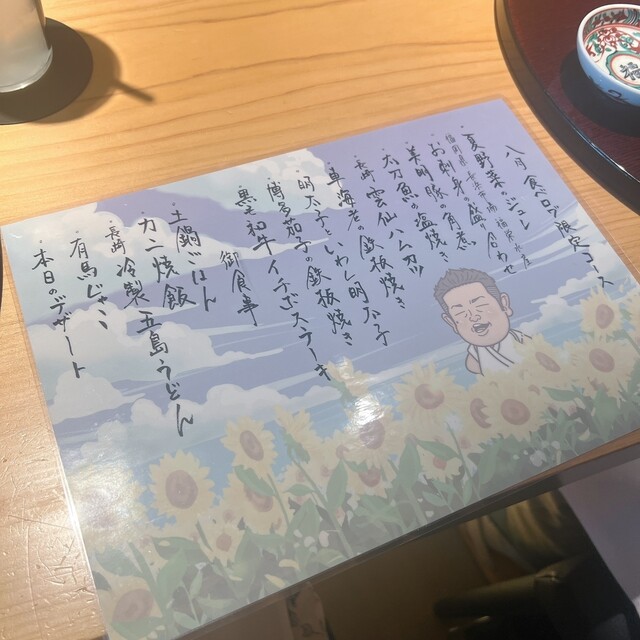 八月食日の限定コース
・夏野菜のジュレ
・お刺身の盛り合わせ
・美明豚の角煮
・太刀魚の塩焼き
・長崎雲仙ハムカツ
・車海老の鉄板焼き
・明太子といわし明太子
・博多茄子の鉄板焼き
・黒毛和牛イチボステーキ
御食事
・土鍋ごはん
・カニ焼飯
・長崎冷製五島うどん
・有馬じゃこ
・本日のデザート